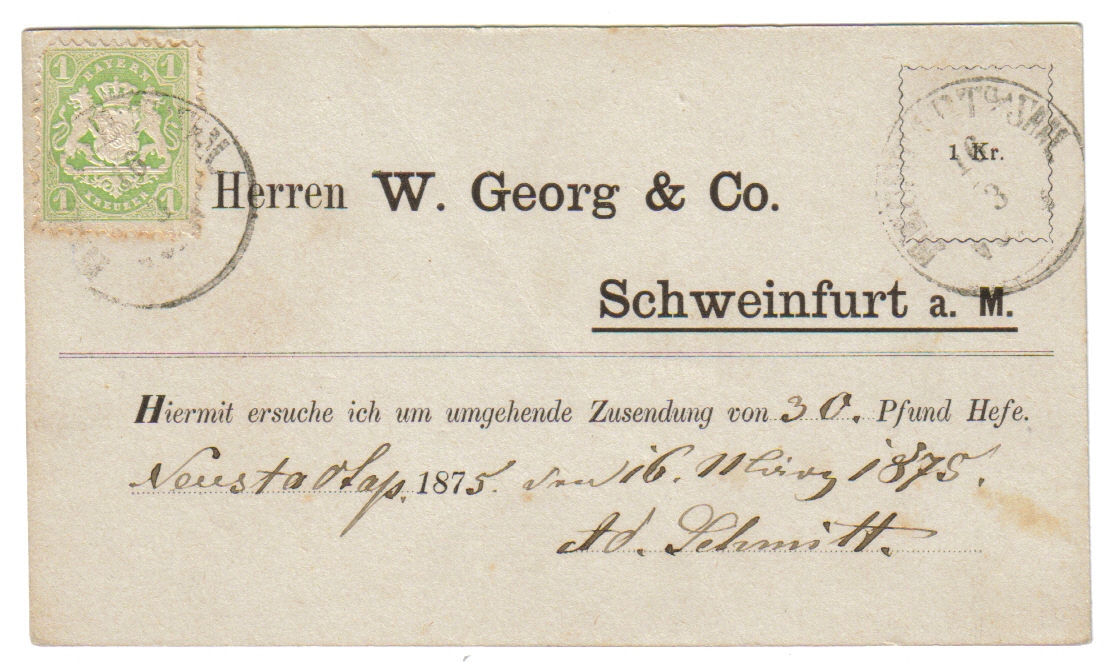 1 1
BAYERN
1 1
KREUZER
1 Kr.
Herren W. Georg & Co.
Schweinfurt a. M.
Hiermit ersuche ich um umgehende Zusendung von 30. Pfund Hefe.
Neustadt ap. 1875. den 16. März 1875.
Ad. Schmitt.